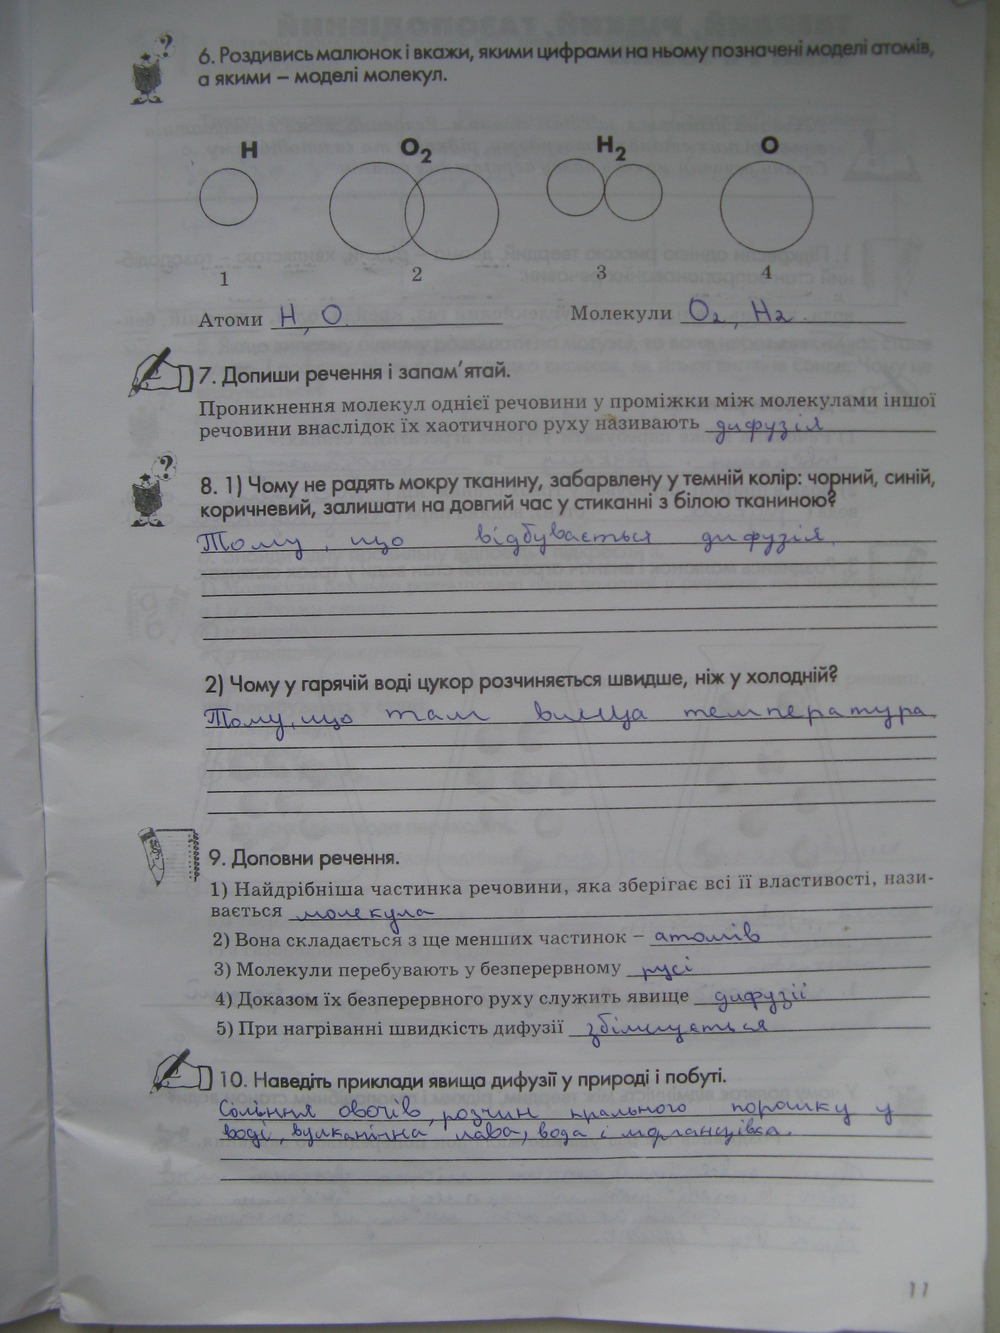 6. Роздивись малюнок і вкажи, якими цифрами на ньому позначені моделі атомів,
а якими – моделі молекул.
H O2 H2 O
1 2 3 4
Атоми H, O. Молекули O2, H2.
7. Допиши речення і запам'ятай.
Проникнення молекул однієї речовини у проміжки між молекулами іншої
речовини внаслідок їх хаотичного руху називають дифузія
8. 1) Чому не радять мокру тканину, забарвлену у темній колір: чорний, синій,
коричневий, залишати на довгий час у стиканні з білою тканиною?
Тому, що відбувається дифузія.
2) Чому у гарячій воді цукор розчиняється швидше, ніж у холодній?
Тому, що там вища температура
9. Доповни речення.
1) Найдрібніша частинка речовини, яка зберігає всі її властивості, нази-
вається молекула
2) Вона складається з ще менших частинок – атомів
3) Молекули перебувають у безперервному русі
4) Доказом їх безперервного руху служить явище дифузії
5) При нагріванні швидкість дифузії збільшується
10. Наведіть приклади явища дифузії у природі і побуті.
Соління овочів, розчин прального порошку у
воді, вулканічна лава, вода і марганцівка.
11